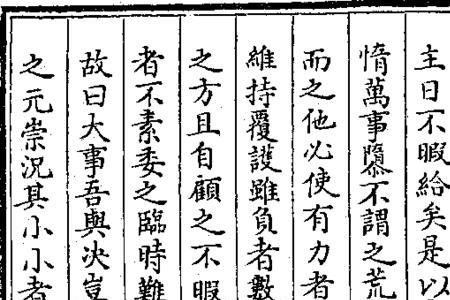 主日不暇給矣是以
惰萬事隳不謂之荒
而之他必使有力者
維持覆護雖負者數
之方且自顧之不暇
者不素委之臨時難
故曰大事吾與決豈
之元崇況其小小者